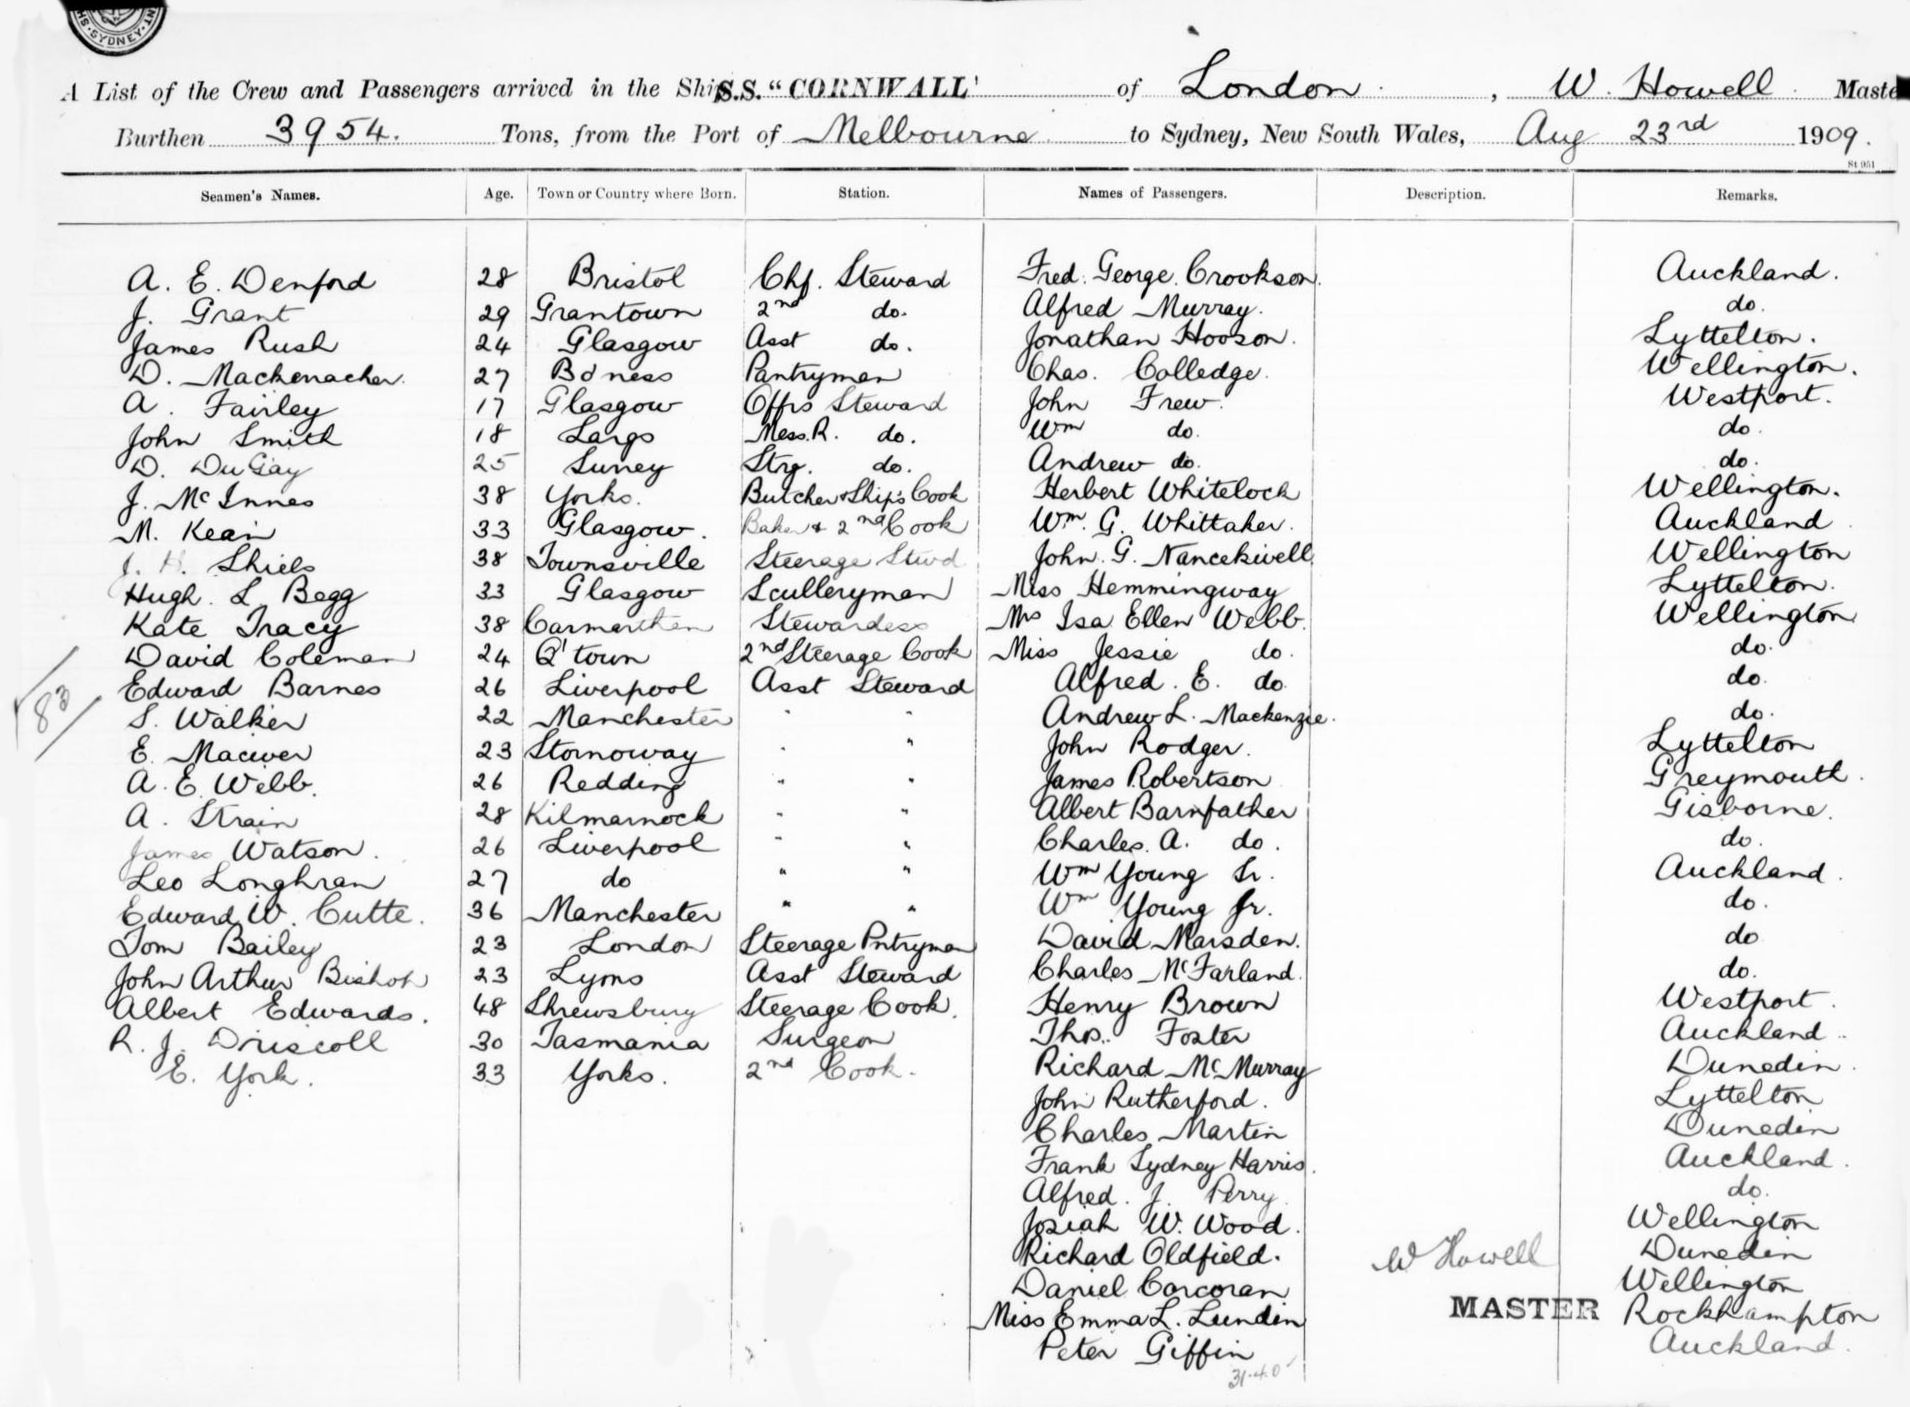 SYDNEY
A List of the Crew and Passengers arrived in the Ship S.S. "CORNWALL" of London, W. Howell Maste
Burthen 3954. Tons, from the Port of Melbourne to Sydney, New South Wales, Aug 23rd 1909.
St 951
Seamen's Names. Age. Town or Country where Born. Station. Names of Passengers. Description. Remarks.
A. E. Denford 28 Bristol Chf. Steward Fred. George. Crookson. Auckland.
J. Grant 29 Grantown 2nd do. Alfred Murray. do.
James Rush 24 Glasgow Asst do. Jonathan Hooson. Lyttelton.
D. Mackenacher. 27 Bo'ness Pantryman Chas. Colledge. Wellington.
A. Fairley 17 Glasgow Offrs Steward John Frew. Westport.
John Smith 18 Largs Mess. R. do. Wm do. do.
D. DuGay 25 Strg. do. Andrew do. do.
J. McInnes 38 Yorks. Butcher & Ship's Cook Herbert Whitelock Wellington.
M. Kean 33 Glasgow. Baker & 2nd Cook Wm. G. Whittaker. Auckland
J. H. Shiels 38 Townsville Steerage Stwd John. G. Nancekivell Wellington
Hugh. L Begg 33 Glasgow Sculleryman Miss Hemmingway Lyttelton.
Kate Tracy 38 Carmarthen Stewardess Mrs Isa Ellen Webb. Wellington
David Coleman 24 Q'town 2nd Steerage Cook Miss Jessie do. do.
Edward Barnes 26 Liverpool Asst Steward Alfred. E. do. do.
83
S. Walker 22 Manchester " " Andrew L. Mackenzie. do.
E. Maciver 23 Stornoway " " John Rodger. Lyttelton
A. E. Webb. 26 Redding " " James Robertson Greymouth.
A. Strain 28 Kilmarnock " " Albert Barnfather Gisborne.
James Watson. 26 Liverpool " " Charles. A. do. do.
Leo Loughran 27 do " " Wm Young Sr. Auckland.
Edward W. Cutte. 36 Manchester " " Wm Young Jr. do.
Tom Bailey 23 London Steerage Pntryman David Marsden. do
John Arthur Bishop 23 Lyons Asst Steward Charles McFarland. do.
Albert Edwards. 48 Shrewsbury Steerage Cook. Henry Brown Westport.
R. J. Driscoll 30 Tasmania Surgeon Thos. Foster Auckland.
E. York. 33 Yorks. 2nd Cook. Richard McMurray Dunedin.
John Rutherford. Lyttelton
Charles Martin Dunedin
Frank Sydney Harris. Auckland.
Alfred. J. Perry. do.
Josiah W. Wood. Wellington
Richard Oldfield. W Howell Dunedin
Daniel Corcoran Wellington
Miss Emma L. Lundin MASTER Rockhampton
Peter Giffin Auckland.
31.4.0